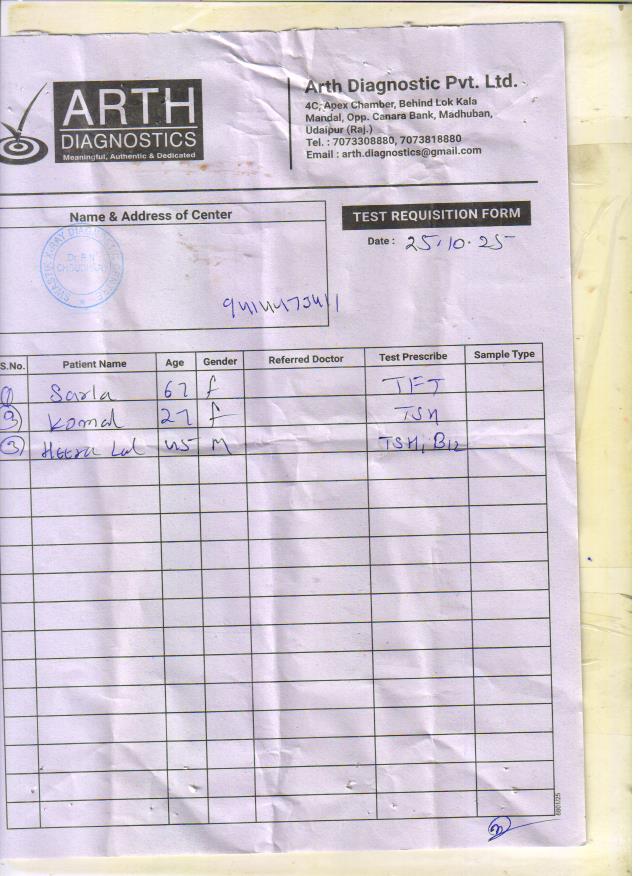 ARTH
DIAGNOSTICS
Meaningful, Authentic & Dedicated
Arth Diagnostic Pvt. Ltd.
4C, Apex Chamber, Behind Lok Kala
Mandal, Opp. Canara Bank, Madhuban,
Udaipur (Raj.)
Tel. : 7073308880, 7073818880
Email : arth.diagnostics@gmail.com
Name & Address of Center
TEST REQUISITION FORM
Date : 25.10.25
SWASTIK X-RAY DIAGNOSTIC CENTRE
Dr. P.N.
CHOUDHARY
S.No. Patient Name Age Gender Referred Doctor Test Prescribe Sample Type
1 Sarla 67 f TFT
2 Komal 27 f TSH
3 Heera Lal 45 M TSH, B12